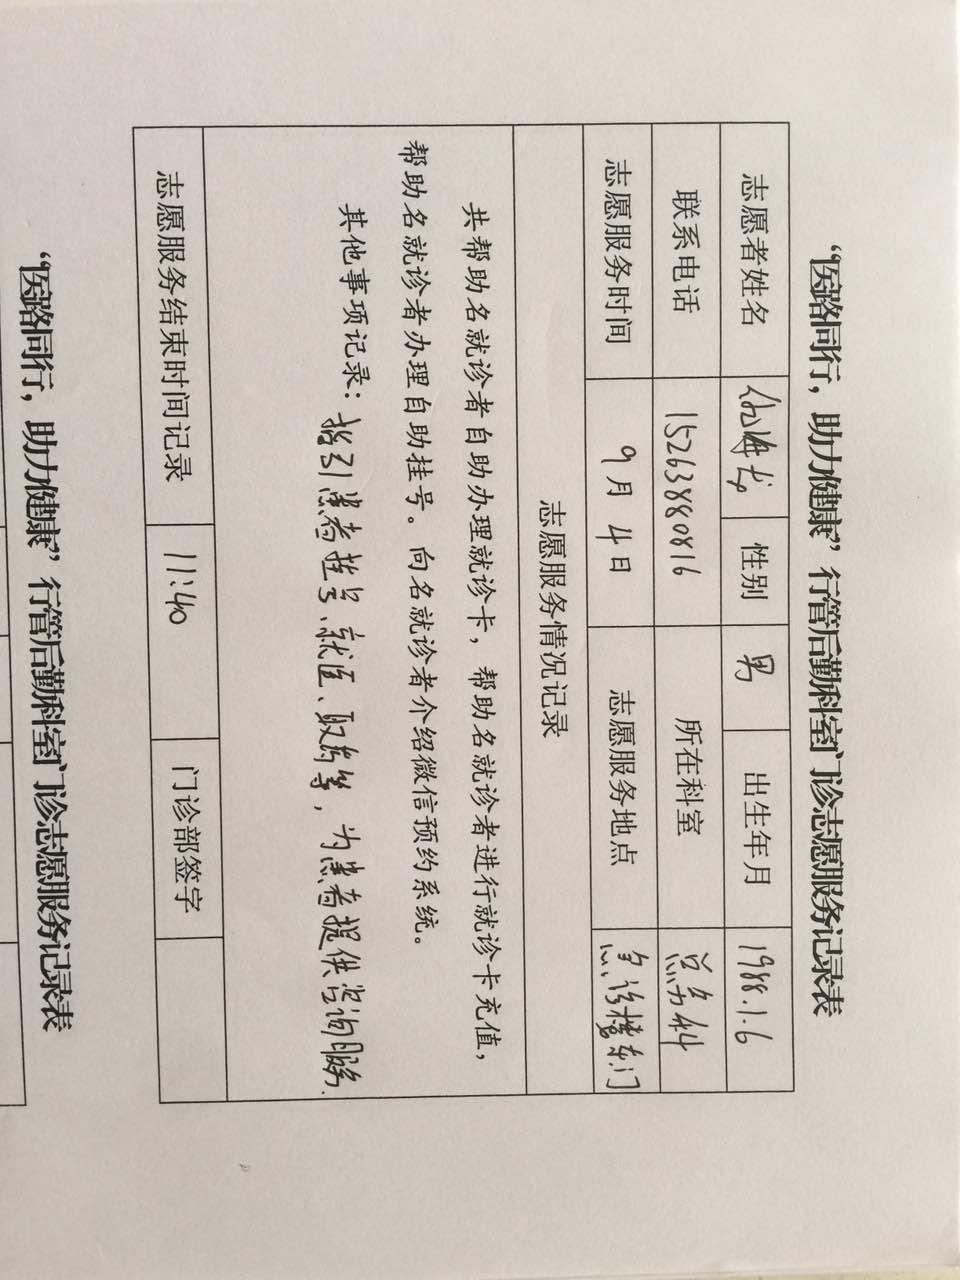 “医路同行，助力健康”行管后勤科室门诊志愿服务记录表
志愿者姓名 性别 男 出生年月 1988.1.6
联系电话 15263880816 所在科室 总务科
志愿服务时间 9月4日 志愿服务地点 急诊楼东门
志愿服务情况记录
共帮助名就诊者自助办理就诊卡，帮助名就诊者进行就诊卡充值，
帮助名就诊者办理自助挂号。向名就诊者介绍微信预约系统。
其他事项记录：指引患者挂号、就医、取药等，为患者提供咨询服务.
志愿服务结束时间记录 11:40 门诊部签字
“医路同行，助力健康”行管后勤科室门诊志愿服务记录表